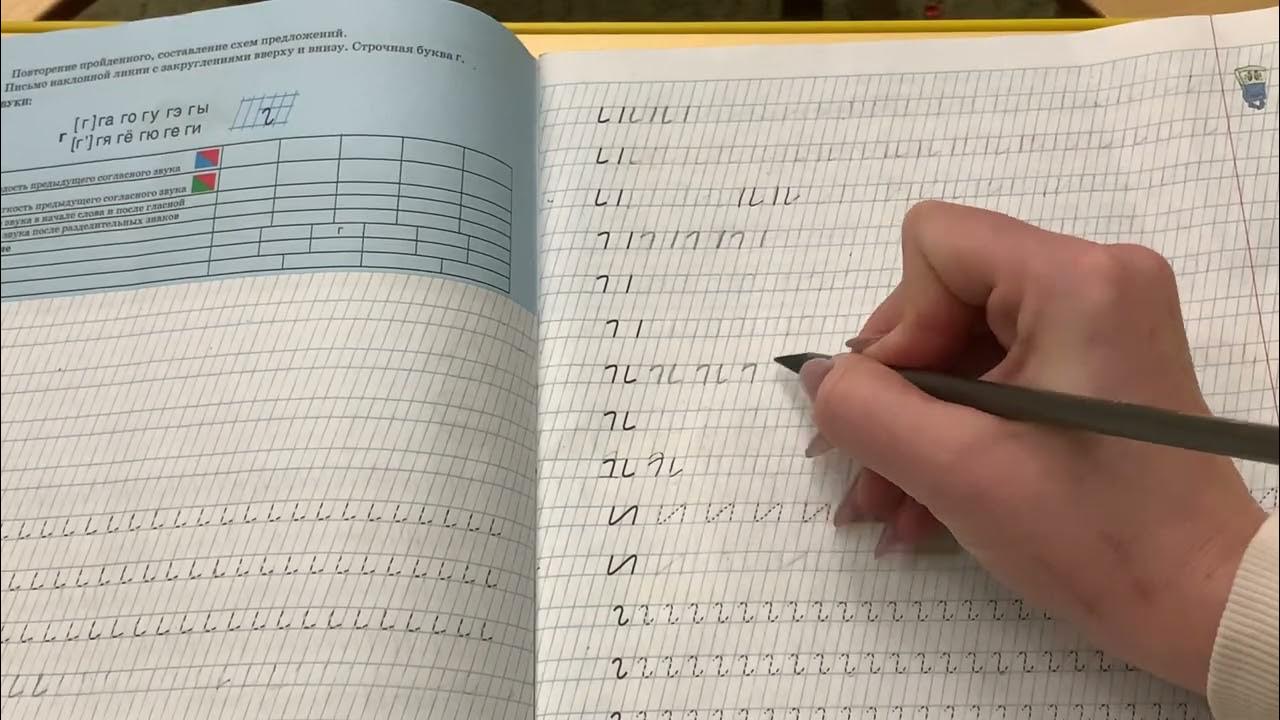 Повторение пройденного, составление схем предложений.
Письмо наклонной линии с закруглениями вверху и внизу. Строчная буква г.
вуки:
г [г]га го гу гэ гы
[г']гя гё гю ге ги
г
дость предыдущего согласного звука
гкость предыдущего согласного звука
звука в начале слова и после гласной
звука после разделительных знаков
г